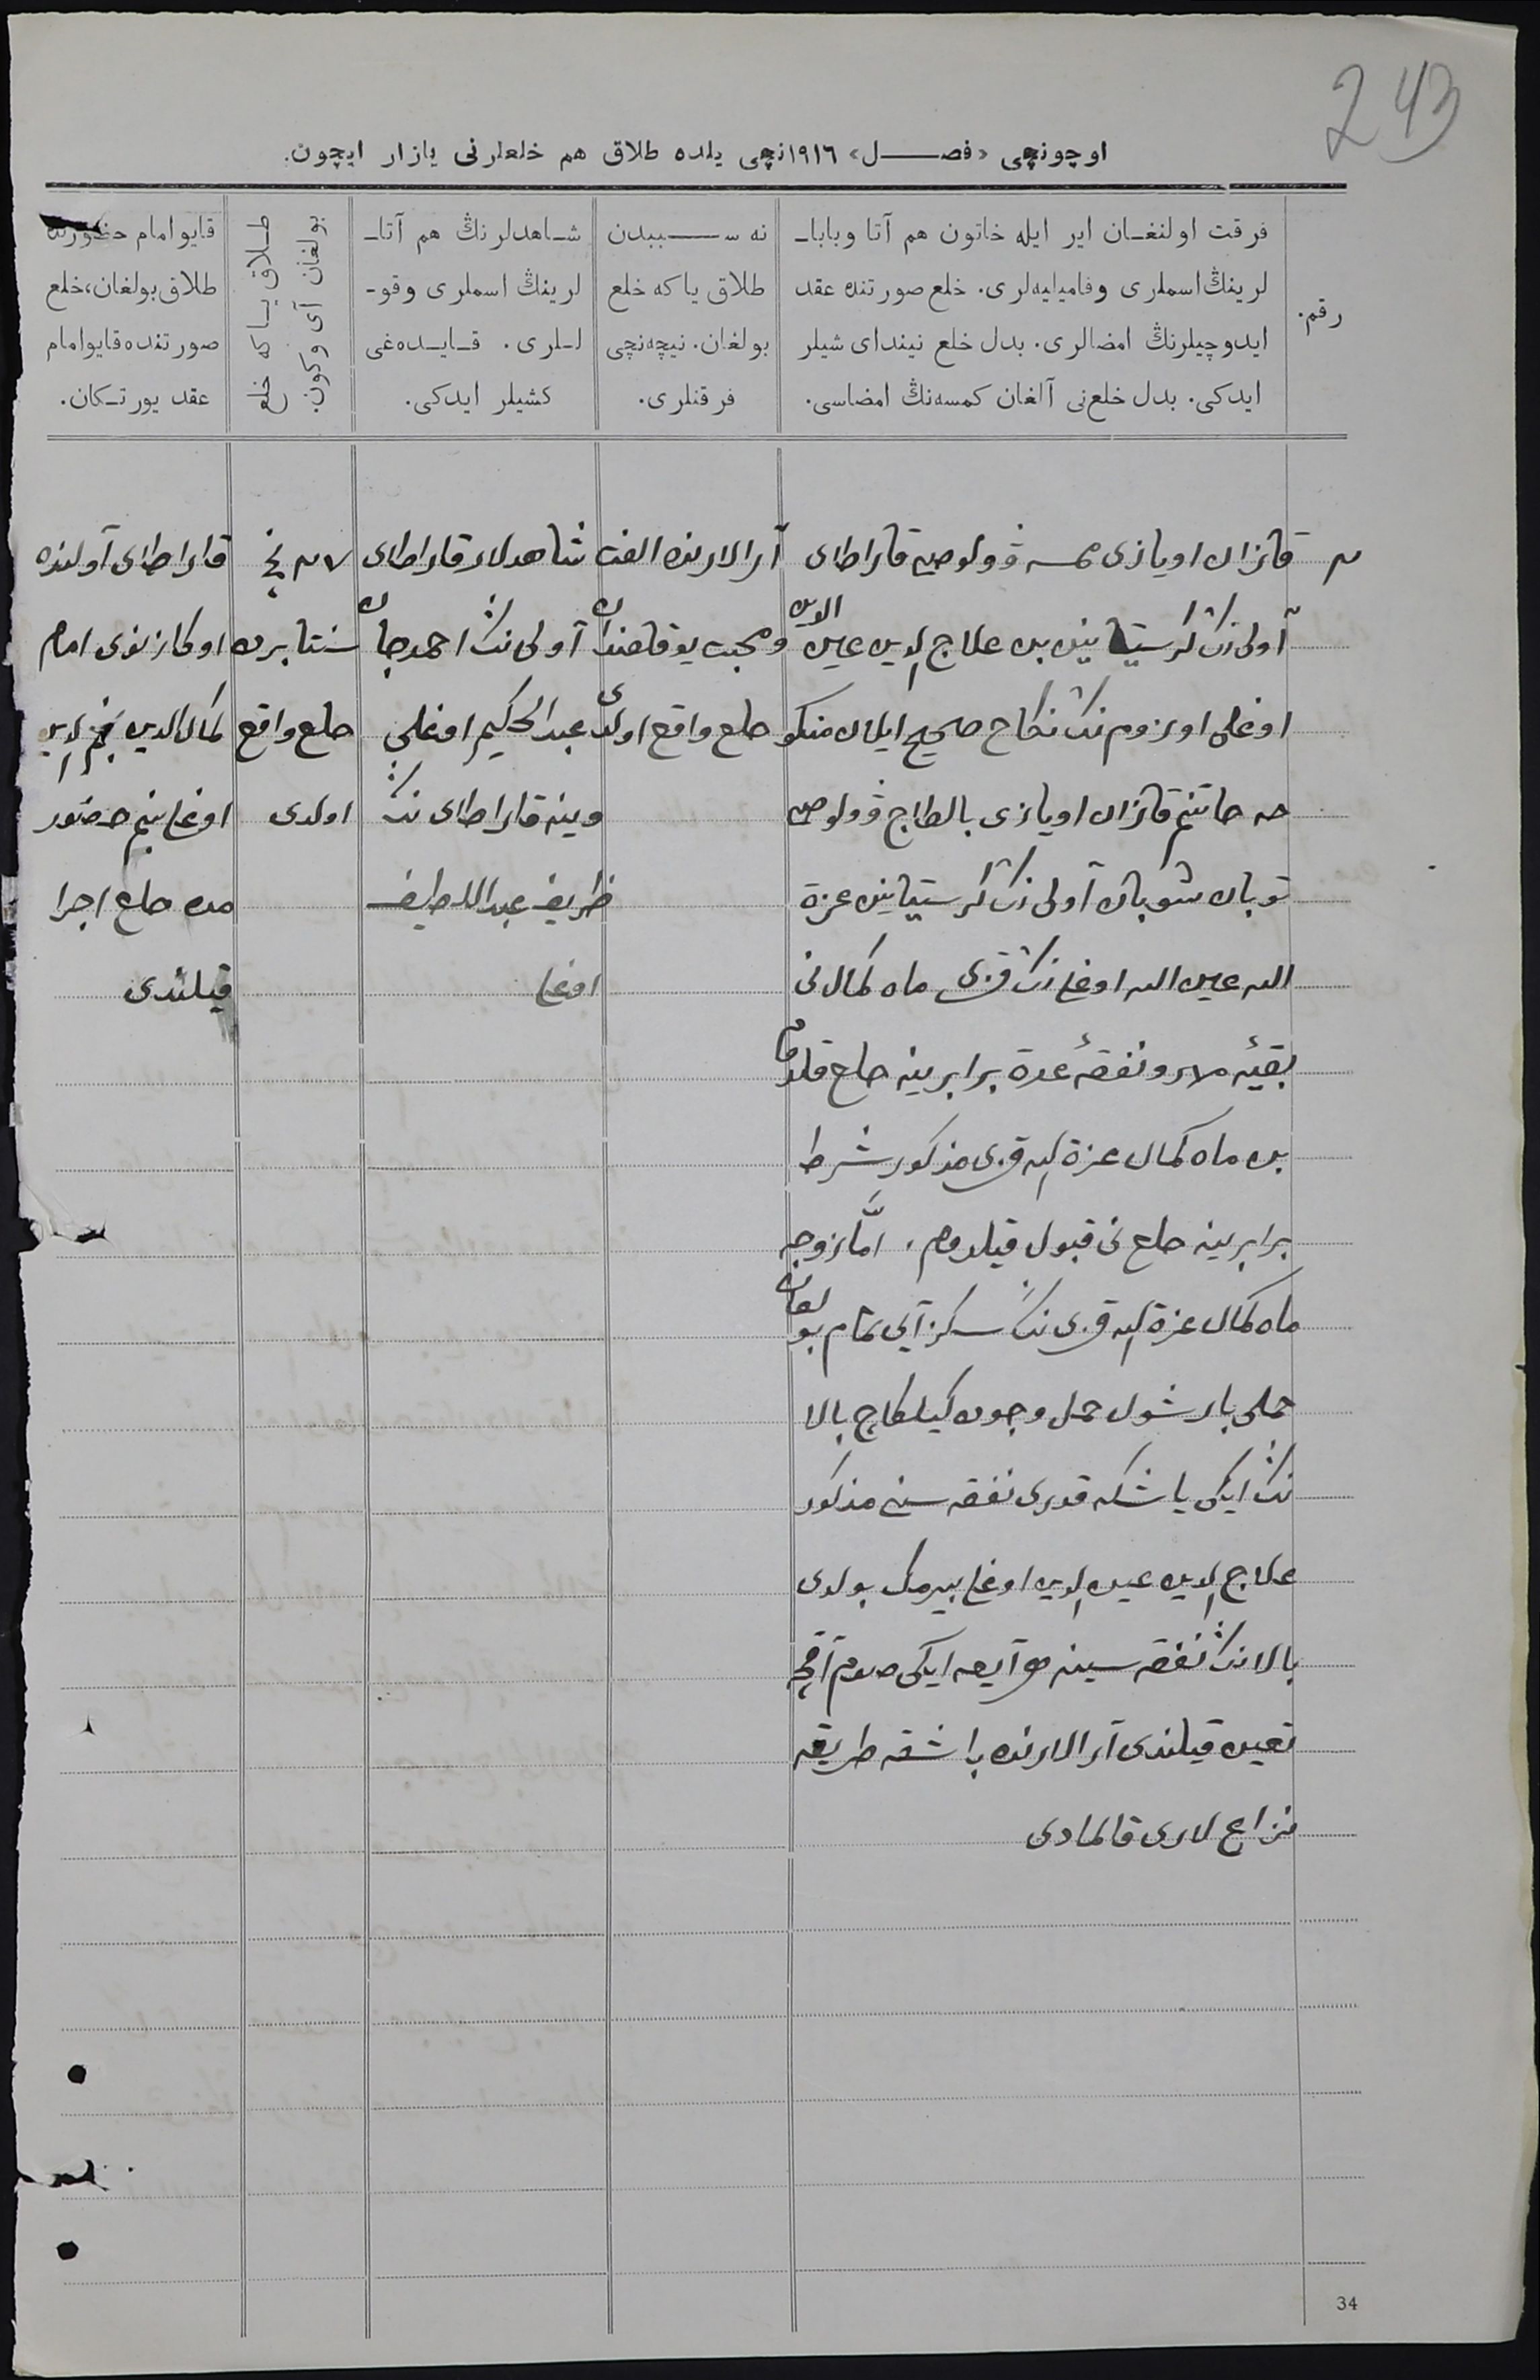 243
اوچونچی «فصل» ۱۹۱۶نچی یلده طلاق هم خلعلرنی یازار ایچون.
رقم.
فرقت اولنغان ایر ایله خاتون هم آتا وبابا-
لرینڭ اسملری وفامیلیه‌لری. خلع صورتنده عقد
ایدوچیلرنڭ امضالری. بدل خلع نیندای شیلر
ایدکی. بدل خلع‌نی آلغان کمسه‌نڭ امضاسی.
نه سببدن
طلاق یا که خلع
بولغان. نیچه‌نچی
فرقتلری.
شاهدلرنڭ هم آتا-
لرینڭ اسملری وقو-
لـلری. قـایـده‌غی
کشیلر ایدکی.
طـلاق یـا که خلع
بولغان آی وکون.
قایو امام حضورنده
طلاق بولغان، خلع
صورتنده قایو امام
عقد یورتـکان.
قازان اویازی وولوصی قاراطای
آولی‌نڭ کرستیانین بن علاج الدین عین الدین
اوغلی اوزوم‌نڭ نکاح صحیح ایلان منکو
حه خاتنم قازان اویازی بالطاچ وولوصی
توبان شوبان آولی‌نڭ کرستیانین عزة
الله عین الله اوغلی‌نڭ قزی ماه کمال‌نی
بقیۀ مهر ونفقۀ عدة برابرینه خلع قلدم
بن ماه کمال عزة الله قزی مذکور شرط
برابرینه خلع‌نی قبول قیلدوم، امّا زوجه
ماه کمال عزة الله قزی‌نڭ سکز آی تمام بولغان
حملی بار شول حمل وجودکه کیلکاچ بالا
نڭ ایکی یاشکه قدری نفقه سینی مذکور
علاج الدین عین الدین اوغلی بیرمک بولدی
بالانڭ نفقه سینه هر آیغه ایکی صوم آقچه
تعیین قیلندی آرالارنده باشقه طریقه
نزاع لاری قالمادی
آرالارنده الفت
ومحبت یوقلقندان
خلع واقع اولدی
شاهدلار قاراطای
آولی‌نڭ احمدجان
عبدالحکیم اوغلی
وینه قاراطای‌نڭ
ظریف عبداللطیف
اوغلی
سنتابرده
خلع واقع
اولدی
قاراطای آولنده
اوکازنوی امام
کمال الدین نجم الدین
اوغلی نیم حضور
مده خلع اجرا
قیلندی
34